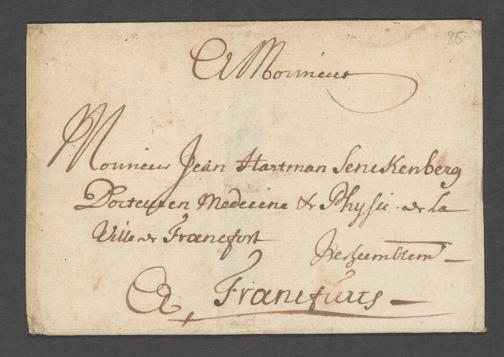 85
A Monsieur
Monsieur Jean Hartman Senckenberg
Docteur en Medecine & Physic. de la
Ville de Francfort
A Francfurts